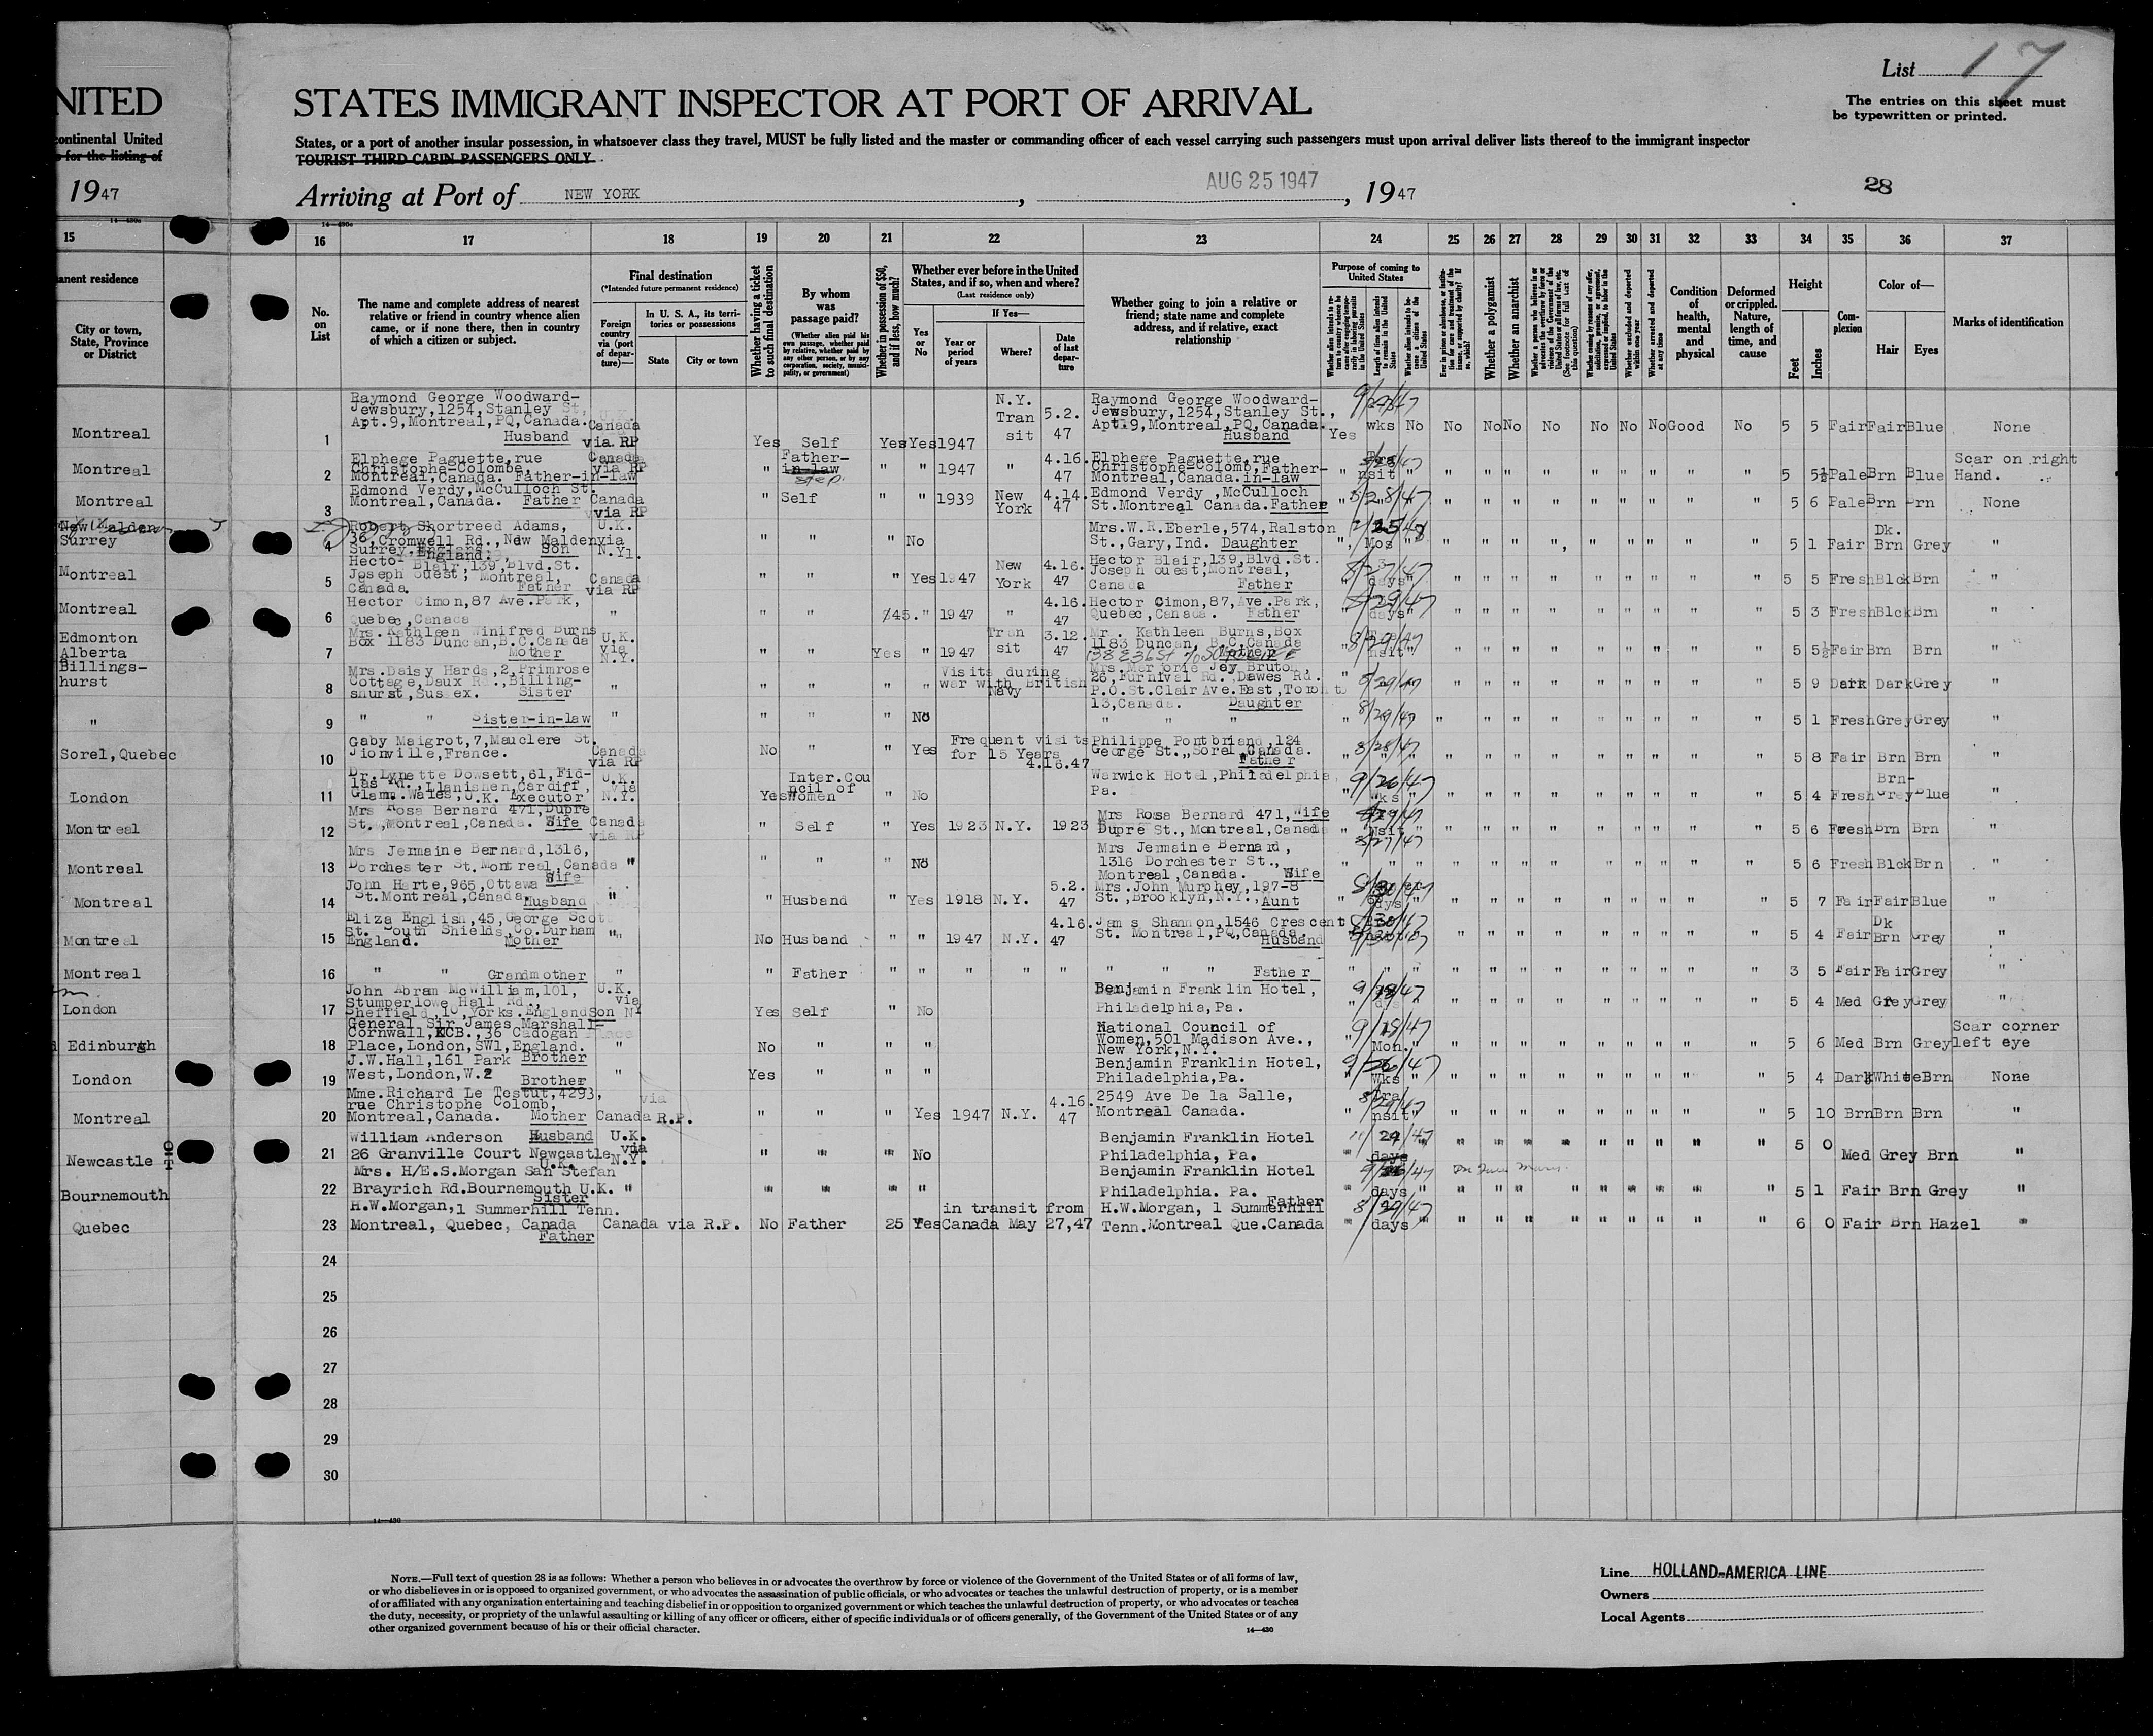 List 17
NITED STATES IMMIGRANT INSPECTOR AT PORT OF ARRIVAL
The entries on this sheet must
be typewritten or printed.
continental United States, or a port of another insular possession, in whatsoever class they travel, MUST be fully listed and the master or commanding officer of each vessel carrying such passengers must upon arrival deliver lists thereof to the immigrant inspector
s for the listing of TOURIST THIRD CABIN PASSENGERS ONLY
1947 Arriving at Port of NEW YORK, AUG 25 1947, 1947 28
15 16 17 18 19 20 21 22 23 24 25 26 27 28 29 30 31 32 33 34 35 36 37
anent residence
City or town,
State, Province
or District
No.
on
List
The name and complete address of nearest
relative or friend in country whence alien
came, or if none there, then in country
of which a citizen or subject.
Final destination
(*Intended future permanent residence)
Foreign
country
via (port
of depar-
ture)—
In U. S. A., its terri-
tories or possessions
State City or town
Whether having a ticket
to such final destination
By whom
was
passage paid?
(Whether alien paid his
own passage, whether paid
by relative, whether paid by
any other person, or by any
corporation, society, munici-
pality, or government)
Whether in possession of $50,
and if less, how much?
Whether ever before in the United
States, and if so, when and where?
(Last residence only)
Yes
or
No
If Yes—
Year or
period
of years
Where?
Date
of last
depar-
ture
Whether going to join a relative or
friend; state name and complete
address, and if relative, exact
relationship
Purpose of coming to
United States
Whether a polygamist
Whether an anarchist
Condition
of
health,
mental
and
physical
Deformed
or crippled.
Nature,
length of
time, and
cause
Height
Feet Inches
Com-
plexion
Color of—
Hair Eyes
Marks of identification
Montreal 1 Raymond George Woodward-
Jewsbury,1254,Stanley St,
Apt.9,Montreal,PQ,Canada.
Husband Canada
via RP Yes Self Yes Yes 1947 N.Y.
Tran
sit 5.2.
47 Raymond George Woodward-
Jewsbury,1254,Stanley St.,
Apt.9,Montreal,PQ,Canada.
Husband Yes wks No No No No No No No No Good No 5 5 Fair Fair Blue None
Montreal 2 Elphege Paguette,rue
Christophe-Colombe,
Montreal,Canada. Father-in-law Canada
via RP " Father-
in-law
step " " 1947 " 4.16.
47 Elphege Paguette,rue
Christophe-Colomb,Father-
Montreal,Canada.in-law " nsit " " " " " " " " " " 5 5½ Pale Brn Blue Scar on right
Hand.
Montreal 3 Edmond Verdy,McCulloch St.
Montreal,Canada. Father Canada
via RP " Self " " 1939 New
York 4.14.
47 Edmond Verdy ,McCulloch
St.Montreal Canada.Father " 8/28/47 " " " " " " " " " 5 6 Pale Brn Brn None
New Malden
Surrey 4 Robert Shortreed Adams,
36,Cromwell Rd.,New Malden
Surrey.England. Son U.K.
via
N.Y. " " " No Mrs.W.R.Eberle,574,Ralston
St.,Gary,Ind. Daughter " Mos " " " " " " " " " " 5 1 Fair Dk.
Brn Grey "
Montreal 5 Hector Blair,139,Blvd.St.
Joseph Ouest, Montreal,
Canada. Father Canada
via RP " " " Yes 1947 New
York 4.16.
47 Hector Blair,139,Blvd.St.
Joseph ouest,Montreal,
Canada Father 8/27/47 days " " " " " " " " " " 5 5 Fresh Blck Brn "
Montreal 6 Hector Cimon,87 Ave.Park,
Quebec,Canada " " " 745. " 1947 " 4.16.
47 Hector Cimon,87,Ave.Park,
Quebec,Canada. Father 8/29/47 days " " " " " " " " " " 5 3 Fresh Blck Brn "
Edmonton
Alberta 7 Mrs.Kathleen Winifred Burns
Box 1183 Duncan,B.C.Canada
Mother U.K.
via
N.Y. " " Yes " 1947 Tran
sit 3.12.
47 Mr. Kathleen Burns,Box
1183 Duncan, B.C.Canada
Mother 8/29/47 nsit " " " " " " " " " " 5 5½ Fair Brn Brn "
Billings-
hurst 8 Mrs.Daisy Hards,2,Primrose
Cottage,Daux Rd.,Billing-
shurst,Sussex. Sister " " " " " Visits during
war with British
Navy Mrs.Marjorie Joy Bruton,
26,Furnival Rd.,Dawes Rd.
P.O.St.Clair Ave.East,Toronto
13,Canada. Daughter " 8/29/47 " " " " " " " " " 5 9 Dark Dark Grey "
" 9 " " Sister-in-law " " " " No " " " " 8/29/47 " " " " " " " " " 5 1 Fresh Grey Grey "
Sorel,Quebec 10 Gaby Maigrot,7,Mauclere St.
Jionville,France. Canada
via RP No " " Yes Frequent visits
for 15 Years
4.16.47 Philippe Pontbriand,124
George St.,,Sorel,Canada.
Father 8/28/47 " " " " " " " " " " 5 8 Fair Brn Brn "
London 11 Dr.Lynette Dowsett,61,Fid-
las Rd.,Llanishen,Cardiff,
Glam.Wales,U.K. Executor U.K.
via
N.Y. Yes Inter.Cou
ncil of
Women " No Warwick Hotel,Philadelphia,
Pa. " 9/26/47 Wks " " " " " " " " " " 5 4 Fresh Brn-
Grey Blue "
Montreal 12 Mrs Rosa Bernard 471,Dupre
St.,Montreal,Canada. Wife Canada
via RP " Self " Yes 1923 N.Y. 1923 Mrs Rosa Bernard 471,Wife
Dupre St., Montreal,Canada " nsit " " " " " " " " " " 5 6 Fresh Brn Brn "
Montreal 13 Mrs Jermaine Bernard,1316,
Dorchester St.Montreal,Canada
Wife " " " " No Mrs Jermaine Bernard,
1316 Dorchester St.,
Montreal,Canada. Wife 8/27/47 " " " " " " " " " " " 5 6 Fresh Blck Brn "
Montreal 14 John Harte,965,Ottawa
St.Montreal,Canada,Husband " " Husband " Yes 1918 N.Y. 5.2.
47 Mrs.John Murphey,197-8
St.,Brooklyn,N.Y.,Aunt 8/30/47 dys " " " " " " " " " " 5 7 Fair Fair Blue "
Montreal 15 Eliza English,45,George Scot
St. South Shields,Co.Durham
England. Mother " No Husband " " 1947 N.Y. 4.16.
47 James Shannon,1546 Crescent
St. Montreal,PQ,Canada.
Husband " " " " " " " " " 5 4 Fair Dk
Brn Grey "
Montreal 16 " " Grandmother " " Father " " " " " " " " Father " " " " " " " " " " " " 3 5 Fair Fair Grey "
London 17 John Abram McWilliam,101,
Stumperlowe Hall Rd.,
Sheffield,10,Yorks.England Son U.K.
via
NY Yes Self " No Benjamin Franklin Hotel,
Philadelphia,Pa. " " " " " " " " " " 5 4 Med Grey Grey "
Edinburgh 18 General Sir James Marshall-
Cornwall,KCB.,36 Cadogan
Place,London,SW1,England.
Brother " No " " " National Council of
Women,501 Madison Ave.,
New York,N.Y. 9/18/47 Mon. " " " " " " " " " " 5 6 Med Brn Grey Scar corner
left eye
London 19 J.W.Hall,161 Park
West,London,W.2 Brother " Yes " " " Benjamin Franklin Hotel,
Philadelphia,Pa. 9/26/47 Wks " " " " " " " " " " 5 4 Dark White Brn None
Montreal 20 Mme.Richard Le Testut,4293,
rue Christophe Colomb,
Montreal,Canada. Mother Canada via R.P. " " " Yes 1947 N.Y. 4.16.
47 2549 Ave De la Salle,
Montreal Canada. " nsit " " " " " " " " " " 5 10 Brn Brn Brn "
Newcastle 21 William Anderson Husband
26 Granville Court Newcastle
U.K. U.K.
via
N.Y. " " " No Benjamin Franklin Hotel
Philadelphia, Pa. days " " " " " " " " " " 5 0 Med Grey Brn "
Bournemouth 22 Mrs. H/E.S.Morgan San Stefan
Brayrich Rd.Bournemouth U.K.
Sister " " " " " Benjamin Franklin Hotel
Philadelphia. Pa. " days " " " " " " " " " 5 1 Fair Brn Grey "
Quebec 23 H.W.Morgan,1 Summerhill Tenn.
Montreal, Quebec, Canada
Father Canada via R.P. No Father 25 Yes in transit from
Canada May 27,47 H.W.Morgan, 1 Summerhill Father
Tenn.Montreal Que.Canada " 8/29/47 days " " " " " " " " " " 6 0 Fair Brn Hazel "
24
25
26
27
28
29
30
14—430
NOTE.—Full text of question 28 is as follows: Whether a person who believes in or advocates the overthrow by force or violence of the Government of the United States or of all forms of law,
or who disbelieves in or is opposed to organized government, or who advocates the assassination of public officials, or who advocates or teaches the unlawful destruction of property, or is a member
of or affiliated with any organization entertaining and teaching disbelief in or opposition to organized government or which teaches the unlawful destruction of property, or who advocates or teaches
the duty, necessity, or propriety of the unlawful assaulting or killing of any officer or officers, either of specific individuals or of officers generally, of the Government of the United States or of any
other organized government because of his or their official character.
14—430
Line HOLLAND-AMERICA LINE
Owners
Local Agents